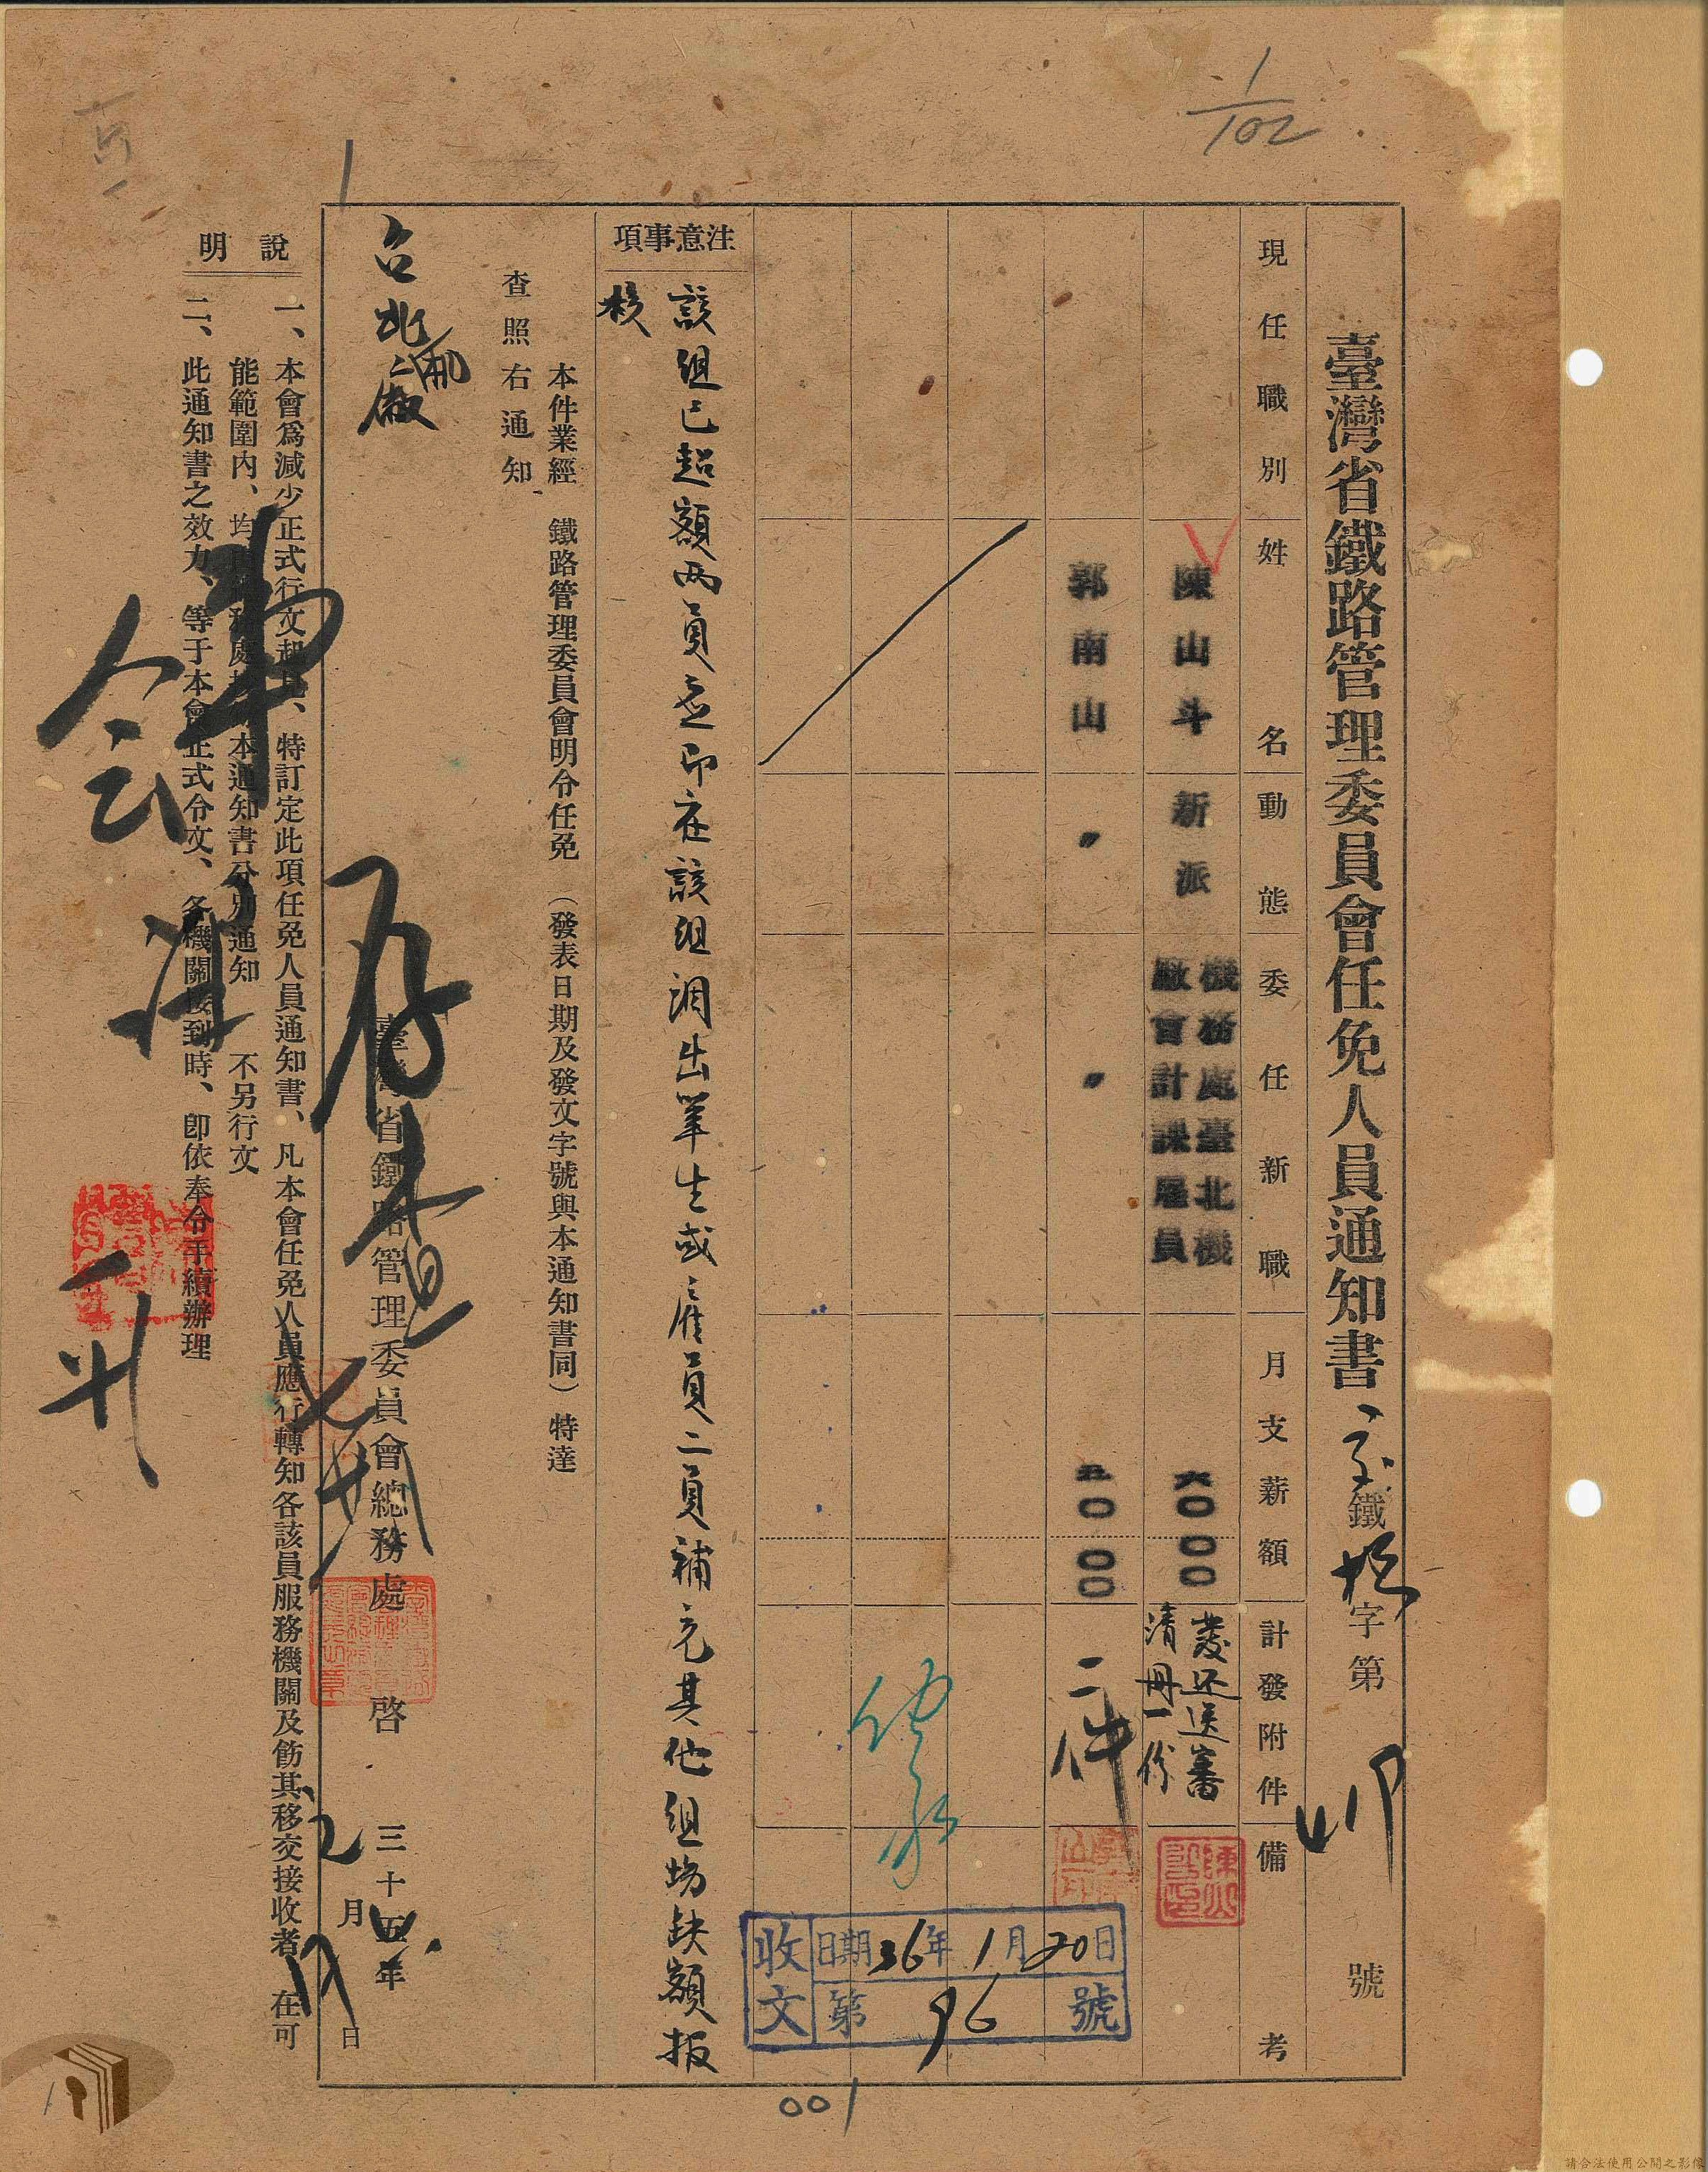 1/102
臺灣省鐵路管理委員會任免人員通知書、
鐵 字第 號
現任職別
姓名
動態
委任新職
月支薪額
計發附件
備考
陳山斗
新派
機務處臺北機
廠會計課雇員
六〇 〇〇
發还送審
清冊一份
郭南山
〃
〃
五〇 〇〇
二件
注意事項
該組已超額兩員希即在該組調出筆生或雇員二員補充其他組場缺額报
核
本件業經 鐵路管理委員會明令任免 (發表日期及發文字號與本通知書同) 特達
查照右通知
台北機廠
臺灣省鐵路管理委員會總務處 啓
三十五年
月 日
說明
一、本會爲減少正式行文起見、特訂定此項任免人員通知書、凡本會任免人員應行轉知各該員服務機關及飭其移交接收者、在可
能範圍內、均 本通知書分別通知 不另行文
二、此通知書之效力、等于本會正式令文、各機關接到時、卽依奉令手續辦理
存查
收文
日期36年1月20日
第 96 號
001
請合法使用公開之影像